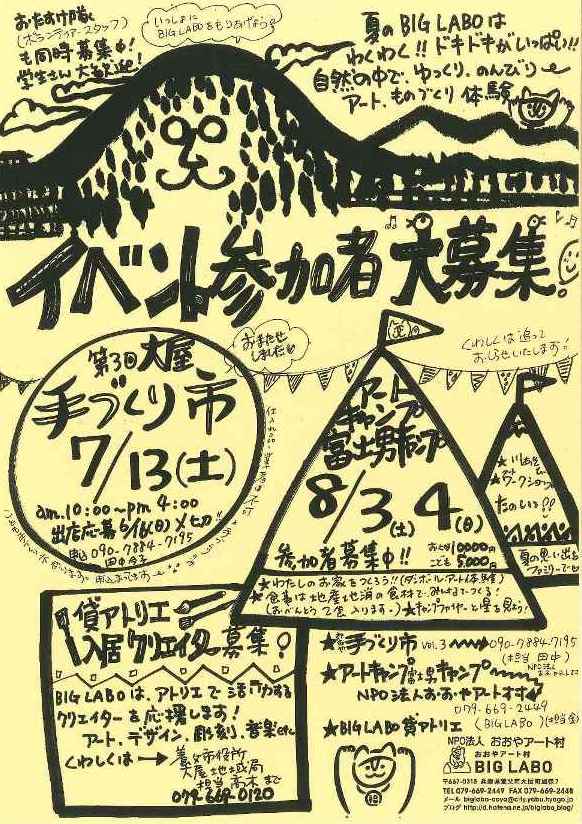 おたすけ隊
(ボランティアースタッフ)
も同時募集中!
学生さん大歓迎!
いっしょに
BIG LABOをもりあげよう!
夏のBIG LABOは
わくわく!!ドキドキがいっぱい!!
自然の中で、ゆっくり、のんびり
アート、ものづくり体験
イベント参加者大募集!
おまたせ
しました
くわしくは追って
お知らせいたします!
第3回大屋
手づくり市
7/13(土)
am.10:00~pm 4:00
出店応募6/16(日)〆切
申込090-7884-7195
田中
アート
キャンプ
富士男キャンプ
8/3(土)4(日)
参加者募集中!!
おとな10000円
こども5,000円
★わたしのお家をつくろう!(ダンボールアート体験)
★食事は地産地消の食材で、みんなでつくる!
(おべんとう1食入ります。)★キャンプファイヤーと星を見よう!
★ワークショップ
たのしい??
夏の思い出を
ファミリーで
貸アトリエ
入居クリエイター募集!
BIG LABOは、アトリエで活動する
クリエイターを応援します!
アート、デザイン、彫刻、音楽etc
くわしくは→養父市役所
大屋地域局
担当 高木まで
079-669-0120
★手づくり市 vol.3 090-7884-7195
(担当 田中)
★アートキャンプ富士男キャンプ
NPO法人おおやアート村
079-669-2449
★BIG LABO貸アトリエ (BIG LABO)
NPO法人 おおやアート村
おおやアート村
BIG LABO
TEL079-669-2449 FAX 079-669-2448
メール biglabo-ooya@city.yabu.hyogo.jp
ブログ http://d.hatena.ne.jp/biglabo_blog/